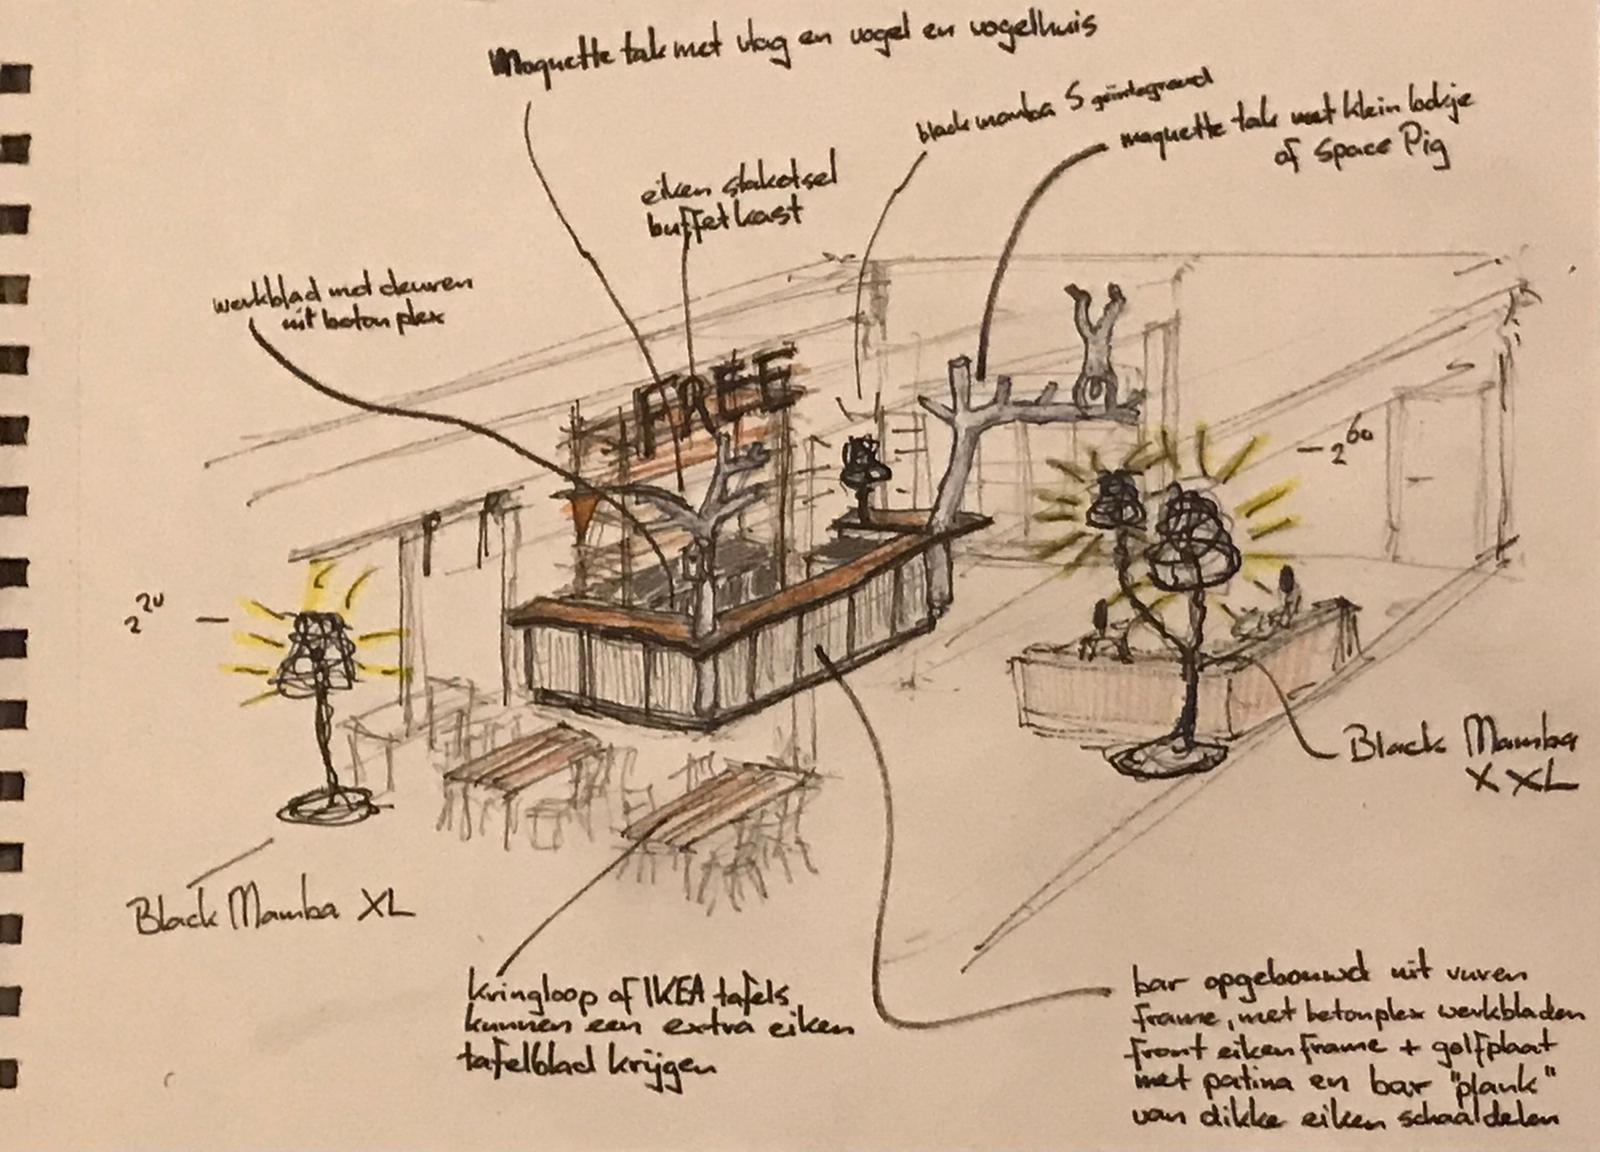 Maquette tak met vlag en vogel en vogelhuis
black mamba S geïntegreerd
maquette tak met klein bokje
of Space Pig
eiken staketsel
buffetkast
werkblad met deuren
uit betonplex
FREE
2⁶⁰
2²⁰
Black Mamba
XXL
Black Mamba XL
kringloop of IKEA tafels
kunnen een extra eiken
tafelblad krijgen
bar opgebouwd uit vuren
frame, met betonplex werkbladen
front eiken frame + golfplaat
met patina en bar "plank"
van dikke eiken schaaldelen